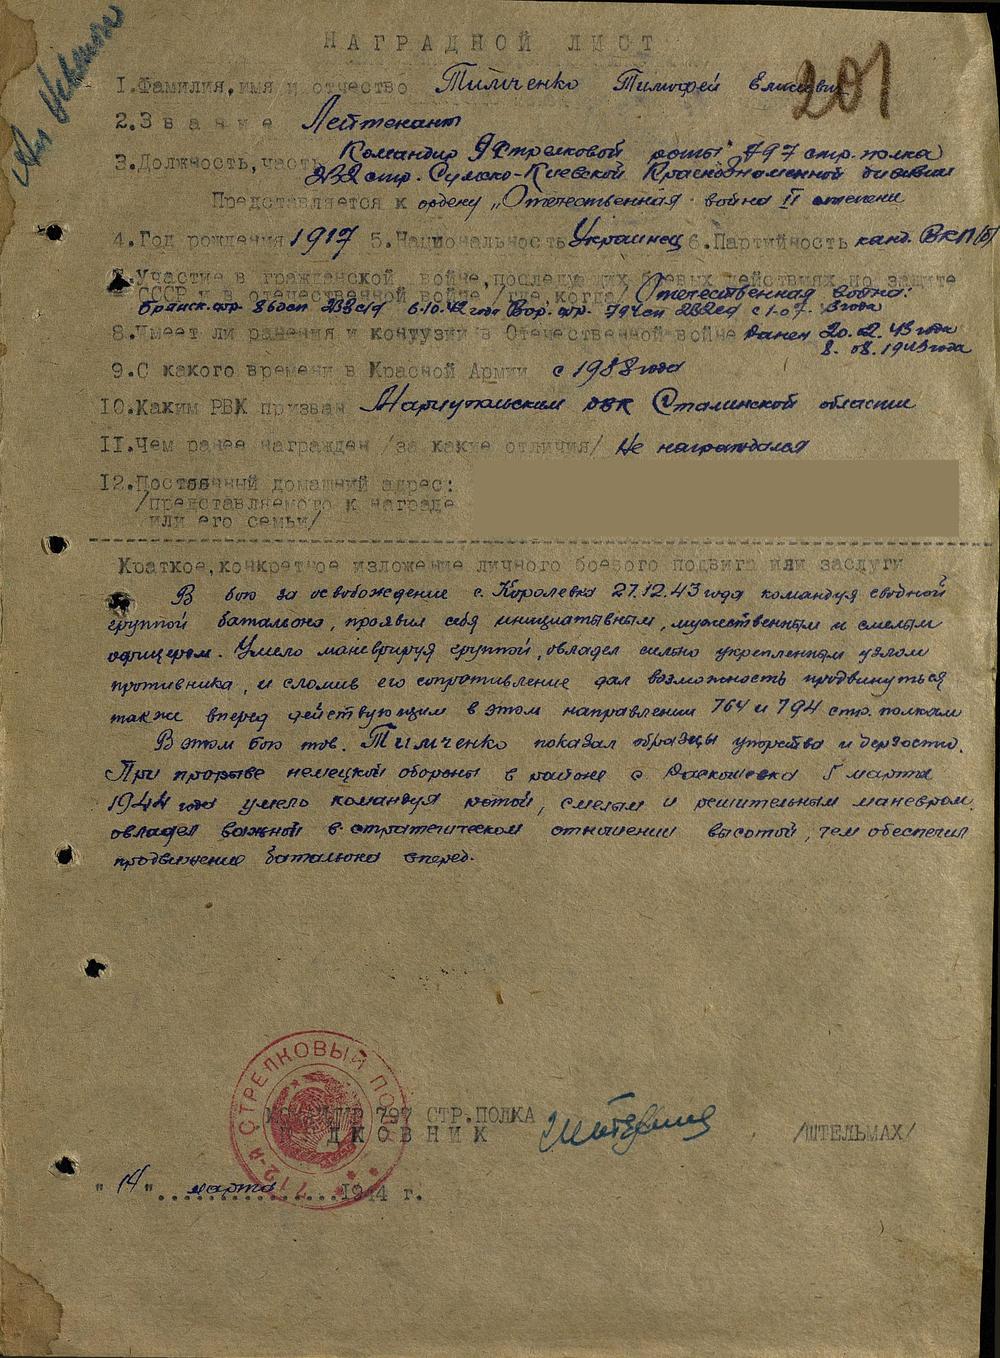 201
НАГРАДНОЙ ЛИСТ
1.Фамилия,имя и отчество Тимченко Тимофей Елисеевич
2.Звание Лейтенант
3.Должность,часть Командир 9 стрелковой роты 797 стр. полка
232 стр. Сумско-Киевской Краснознаменной дивизии
Представляется к ордену „Отечественная война II степени
4.Год рождения 1917 5.Национальность Украинец 6.Партийность канд. ВКП(б)
7.Участие в гражданской войне,последующих боевых действиях по защите
СССР и в отечественной войне /где,когда/ Отечественная война:
Брянск. фр. 6.10.42 года Вор. фр. 232сд
8.Имеет ли ранения и контузии в Отечественной войне ранен 20.02.43 года
8.08.1943 года
9.С какого времени в Красной Армии с 1938 года
10.Каким РВК призван Мариупольским РВК Сталинской области
11.Чем ранее награжден /за какие отличия/ Не награждался
12.Постоянный домашний адрес:
/представляемого к награде
или его семьи/
Краткое,конкретное изложение личного боевого подвига или заслуги
В бою за освобождение с. Королевка 27.12.43 года командуя сводной
группой батальона, проявил себя инициатывным, мужественным и смелым
офицером. Умело маневрируя группой, овладел сильно укрепленным узлом
противника, и сломив его сопротивление дал возможность продвинуться
также вперед действующим в этом направлении 764 и 794 стр. полкам
В этом бою тов. Тимченко показал образцы упорства и дерзости.
При прорыве немецкой обороны в районе с. 5 марта
1944 года умело командуя ротой, смелым и решительным маневром,
овладел важной в стратегическом отношении высотой, тем обеспечил
продвижение батальона вперед.
712-й СТРЕЛКОВЫЙ ПОЛК
КОМАНДИР 797 СТР.ПОЛКА
ПОДКОВНИК /ШТЕЛЬМАХ/
"14" марта 1944 г.